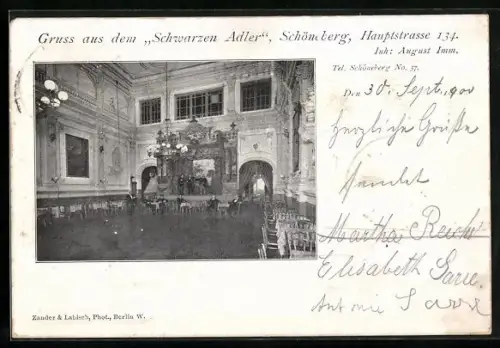 Gruss aus dem „Schwarzen Adler“, Schöneberg, Hauptstrasse 134.
Inh: August Imm.
Tel. Schöneberg No. 57.
Den 30. Sept. 900
herzliche Grüße
sendet
Martha Reich
Elisabeth
Zander & Labisch, Phot., Berlin W.